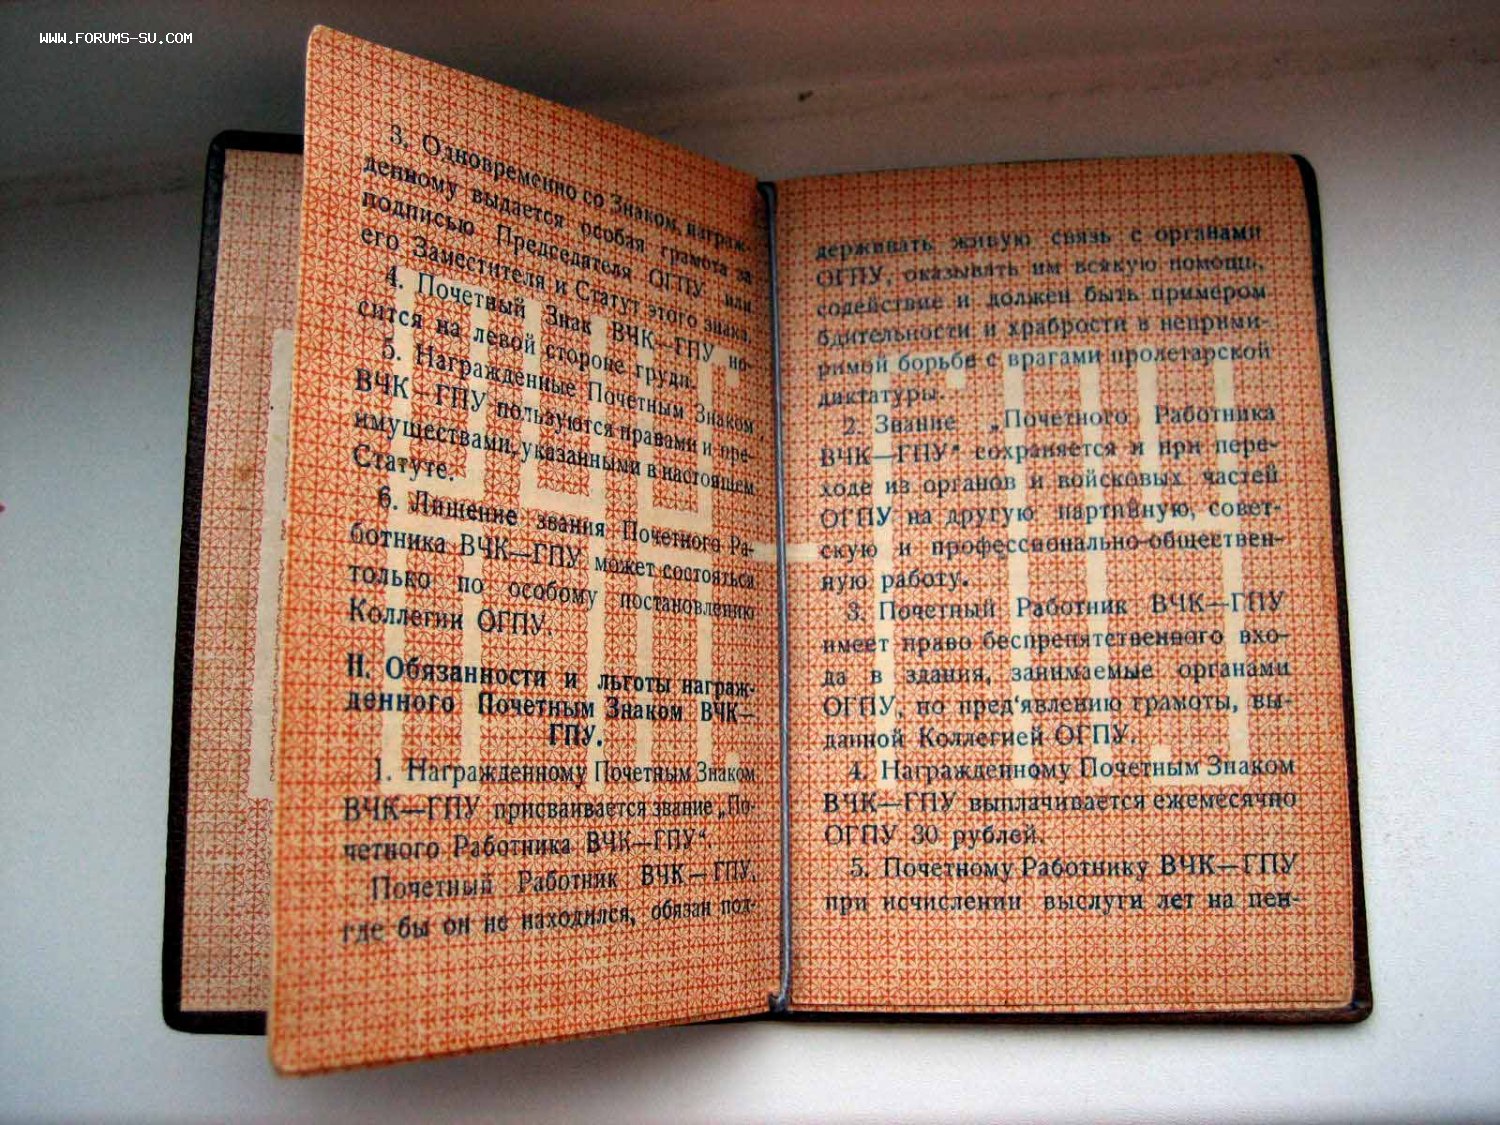 WWW.FORUMS-SU.COM
3. Одновременно со Знаком, награж-
денному выдается особая грамота за
подписью Председателя ОГПУ или
его Заместителя и Статут этого знака.
4. Почетный Знак ВЧК—ГПУ но-
сится на левой стороне груди.
5. Награжденные Почетным Знаком
ВЧК—ГПУ пользуются правами и пре-
имуществами, указанными в настоящем
Статуте.
6. Лишение звания Почетного Ра-
ботника ВЧК—ГПУ может состояться
только по особому постановлению
Коллегии ОГПУ.
II. Обязанности и льготы награж-
денного Почетным Знаком ВЧК—
ГПУ.
1. Награжденному Почетным Знаком
ВЧК—ГПУ присваивается звание „По-
четного Работника ВЧК—ГПУ“.
Почетный Работник ВЧК—ГПУ,
где бы он не находился, обязан под-
держивать живую связь с органами
ОГПУ, оказывать им всякую помощь,
содействие и должен быть примером
бдительности и храбрости в неприми-
римой борьбе с врагами пролетарской
диктатуры.
2. Звание „Почетного Работника
ВЧК—ГПУ“ сохраняется и при пере-
ходе из органов и войсковых частей
ОГПУ на другую партийную, совет-
скую и профессионально-обществен-
ную работу.
3. Почетный Работник ВЧК—ГПУ
имеет право беспрепятственного вхо-
да в здания, занимаемые органами
ОГПУ, по пред‘явлению грамоты, вы-
данной Коллегией ОГПУ.
4. Награжденному Почетным Знаком
ВЧК—ГПУ выплачивается ежемесячно
ОГПУ 30 рублей.
5. Почетному Работнику ВЧК—ГПУ
при исчислении выслуги лет на пен-